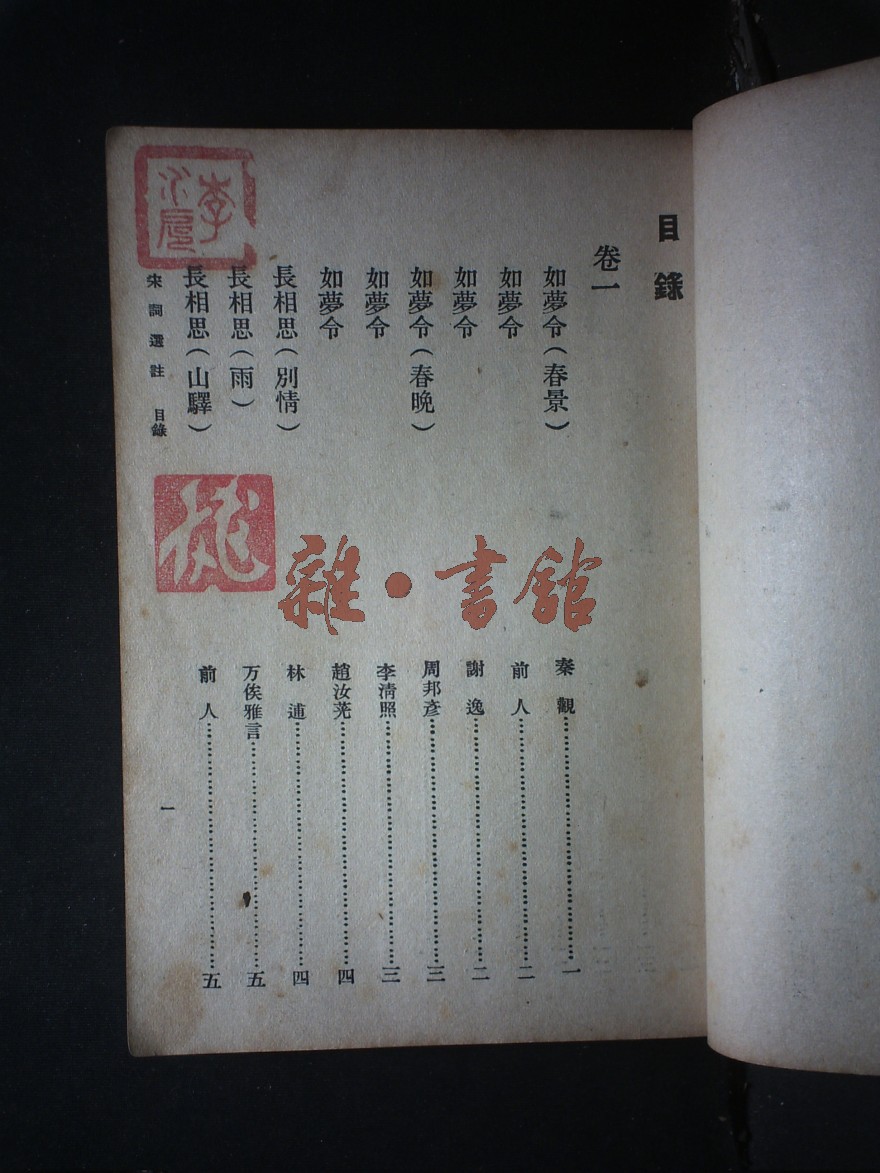 目錄
卷一
如夢令(春景) 秦觀……一
如夢令 前人……二
如夢令 謝逸……二
如夢令(春晚) 周邦彥……三
如夢令 李清照……三
如夢令 趙汝茪……四
長相思(別情) 林逋……四
長相思(雨) 万俟雅言……五
長相思(山驛) 前人……五
宋詞選註 目錄 一
李
雜·書館